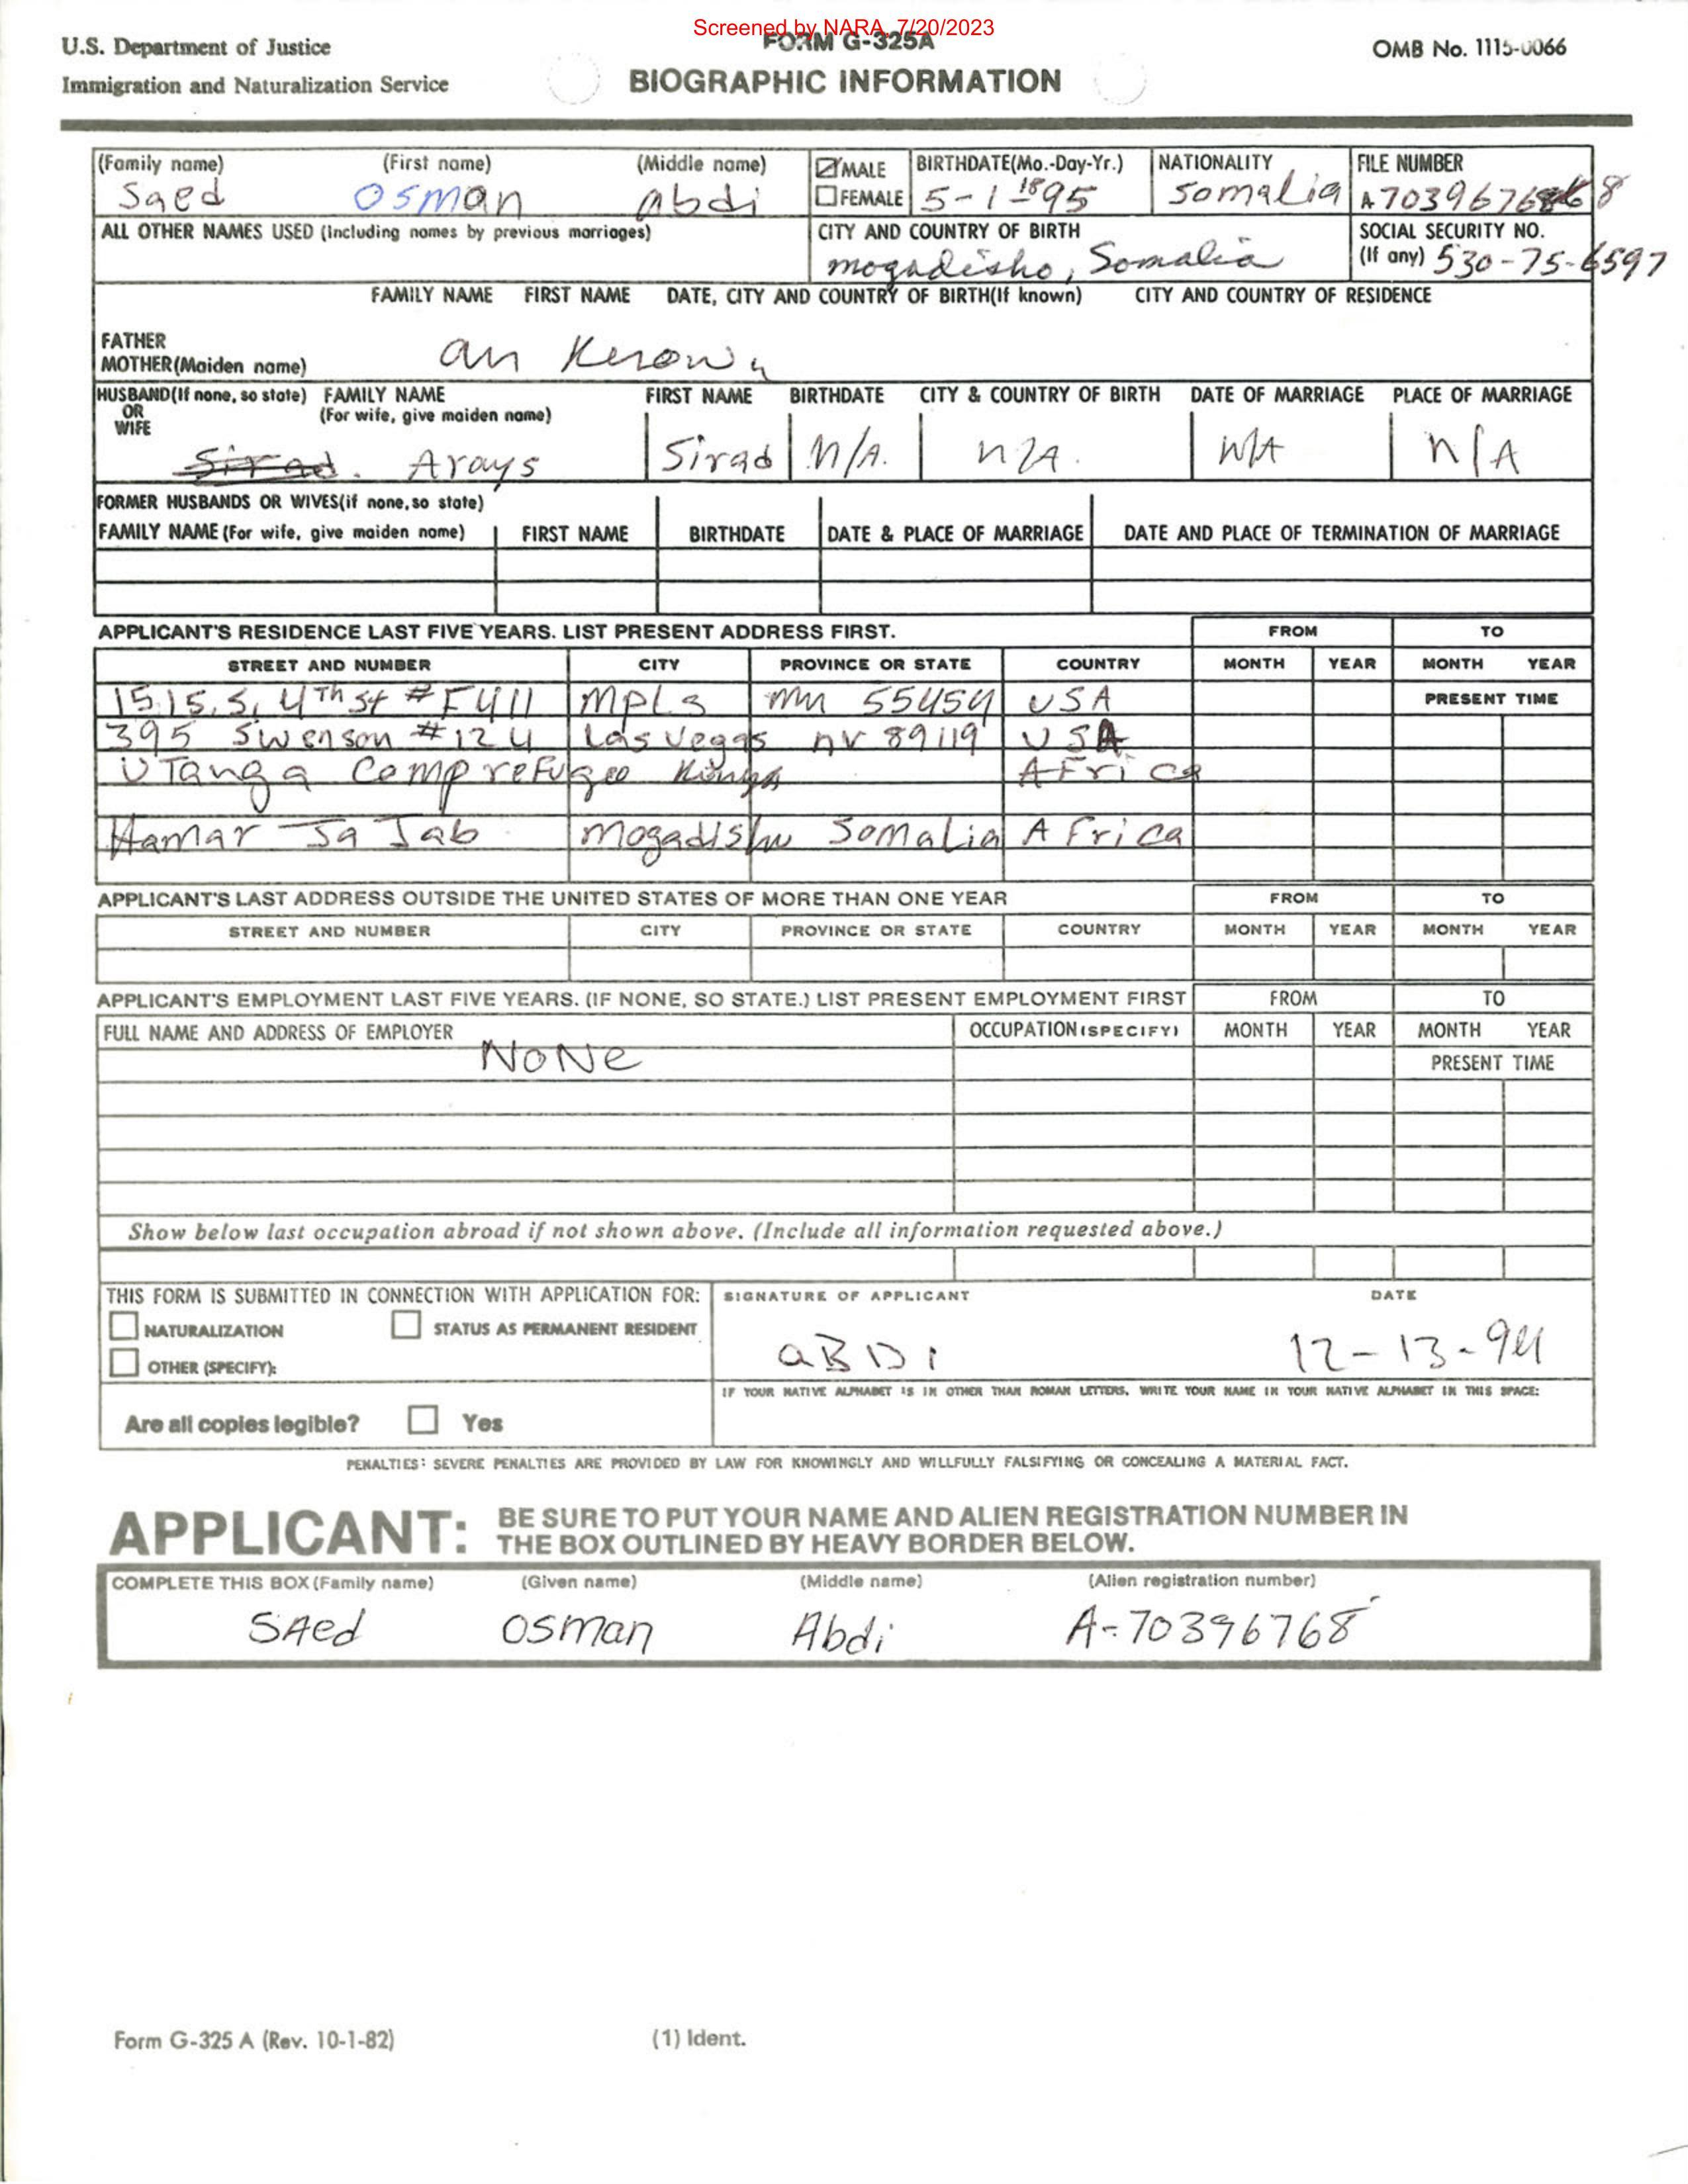 Screened by NARA, 7/20/2023
U.S. Department of Justice
Immigration and Naturalization Service
FORM G-325A
BIOGRAPHIC INFORMATION
OMB No. 1115-0066
(Family name) (First name) (Middle name) MALE BIRTHDATE(Mo.-Day-Yr.) NATIONALITY FILE NUMBER
Saed Osman Abdi FEMALE 5-1-1895 Somalia A 70396768
ALL OTHER NAMES USED (Including names by previous marriages) CITY AND COUNTRY OF BIRTH SOCIAL SECURITY NO.
mogadisho, Somalia (If any) 530-75-6597
FAMILY NAME FIRST NAME DATE, CITY AND COUNTRY OF BIRTH(If known) CITY AND COUNTRY OF RESIDENCE
FATHER
MOTHER(Maiden name) an Kerown
HUSBAND(If none, so state) FAMILY NAME FIRST NAME BIRTHDATE CITY & COUNTRY OF BIRTH DATE OF MARRIAGE PLACE OF MARRIAGE
OR (For wife, give maiden name)
WIFE
Sirad. Arays Sirad N/A. N/A. N/A N/A
FORMER HUSBANDS OR WIVES(if none, so state)
FAMILY NAME (For wife, give maiden name) FIRST NAME BIRTHDATE DATE & PLACE OF MARRIAGE DATE AND PLACE OF TERMINATION OF MARRIAGE
APPLICANT'S RESIDENCE LAST FIVE YEARS. LIST PRESENT ADDRESS FIRST. FROM TO
STREET AND NUMBER CITY PROVINCE OR STATE COUNTRY MONTH YEAR MONTH YEAR
1515. S. 4Th St #F411 MPLS mn 55454 USA PRESENT TIME
395 Swenson #124 Las Vegas nv 89119 USA
UTanga Comp reFugee AFrica
Hamar Ja Jab mogadishu Somalia AFrica
APPLICANT'S LAST ADDRESS OUTSIDE THE UNITED STATES OF MORE THAN ONE YEAR FROM TO
STREET AND NUMBER CITY PROVINCE OR STATE COUNTRY MONTH YEAR MONTH YEAR
APPLICANT'S EMPLOYMENT LAST FIVE YEARS. (IF NONE, SO STATE.) LIST PRESENT EMPLOYMENT FIRST FROM TO
FULL NAME AND ADDRESS OF EMPLOYER OCCUPATION (SPECIFY) MONTH YEAR MONTH YEAR
NoNe PRESENT TIME
Show below last occupation abroad if not shown above. (Include all information requested above.)
THIS FORM IS SUBMITTED IN CONNECTION WITH APPLICATION FOR: SIGNATURE OF APPLICANT DATE
NATURALIZATION STATUS AS PERMANENT RESIDENT
OTHER (SPECIFY): aBDi 12-13-94
IF YOUR NATIVE ALPHABET IS IN OTHER THAN ROMAN LETTERS, WRITE YOUR NAME IN YOUR NATIVE ALPHABET IN THIS SPACE:
Are all copies legible? Yes
PENALTIES: SEVERE PENALTIES ARE PROVIDED BY LAW FOR KNOWINGLY AND WILLFULLY FALSIFYING OR CONCEALING A MATERIAL FACT.
APPLICANT: BE SURE TO PUT YOUR NAME AND ALIEN REGISTRATION NUMBER IN
THE BOX OUTLINED BY HEAVY BORDER BELOW.
COMPLETE THIS BOX (Family name) (Given name) (Middle name) (Alien registration number)
SAed osman Abdi A-70396768
Form G-325 A (Rev. 10-1-82) (1) Ident.